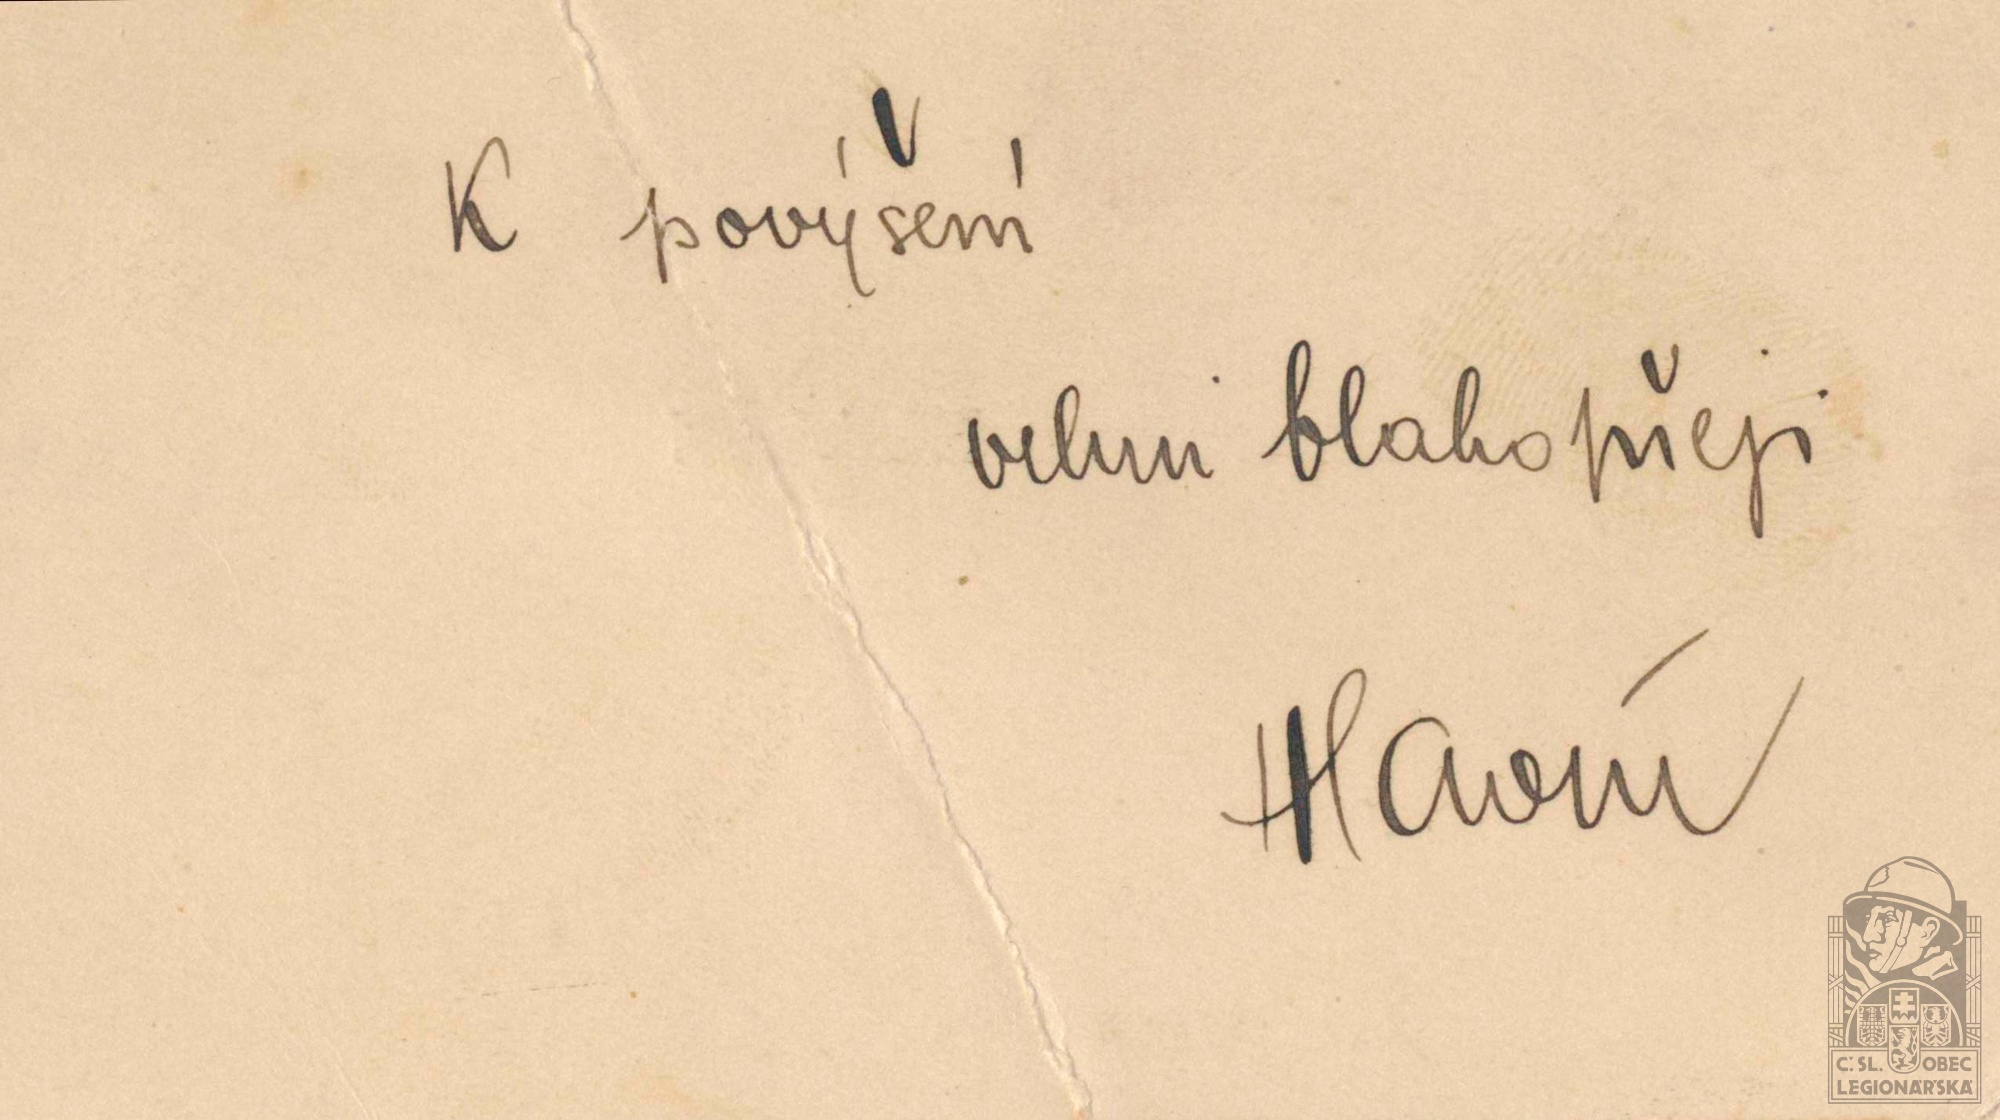 K povýšení
velmi blahopřeji
Č. SL. OBEC
LEGIONÁŘSKÁ